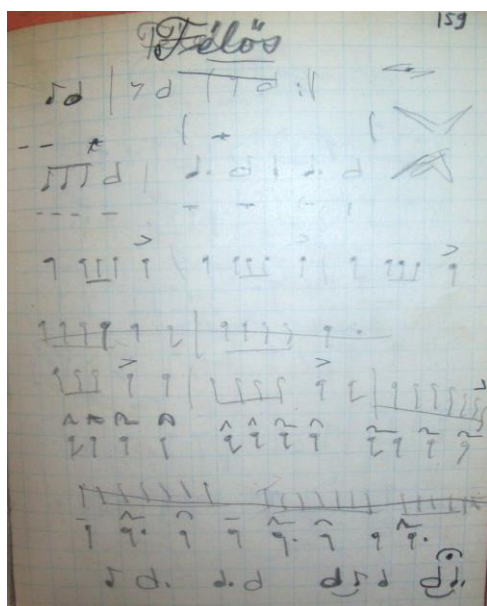 159
Félős